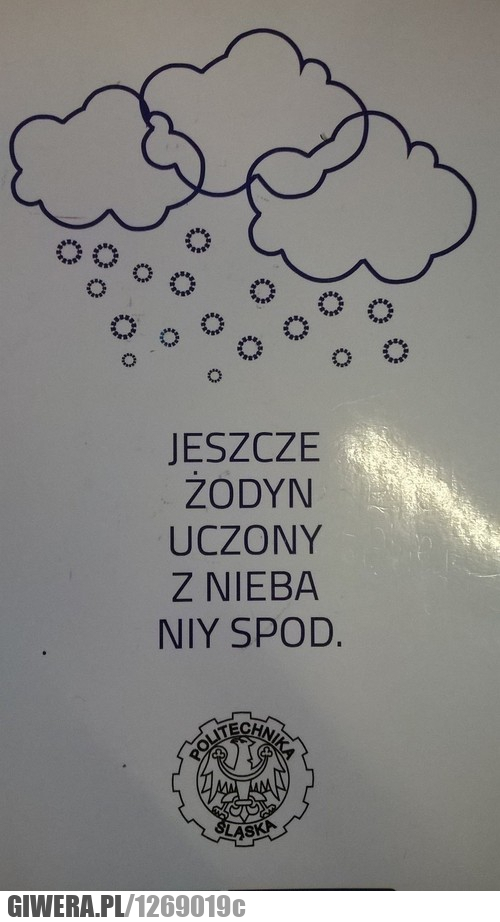 JESZCZE
ŻODYN
UCZONY
Z NIEBA
NIY SPOD.
POLITECHNIKA
ŚLĄSKA
GIWERA.PL/1269019c